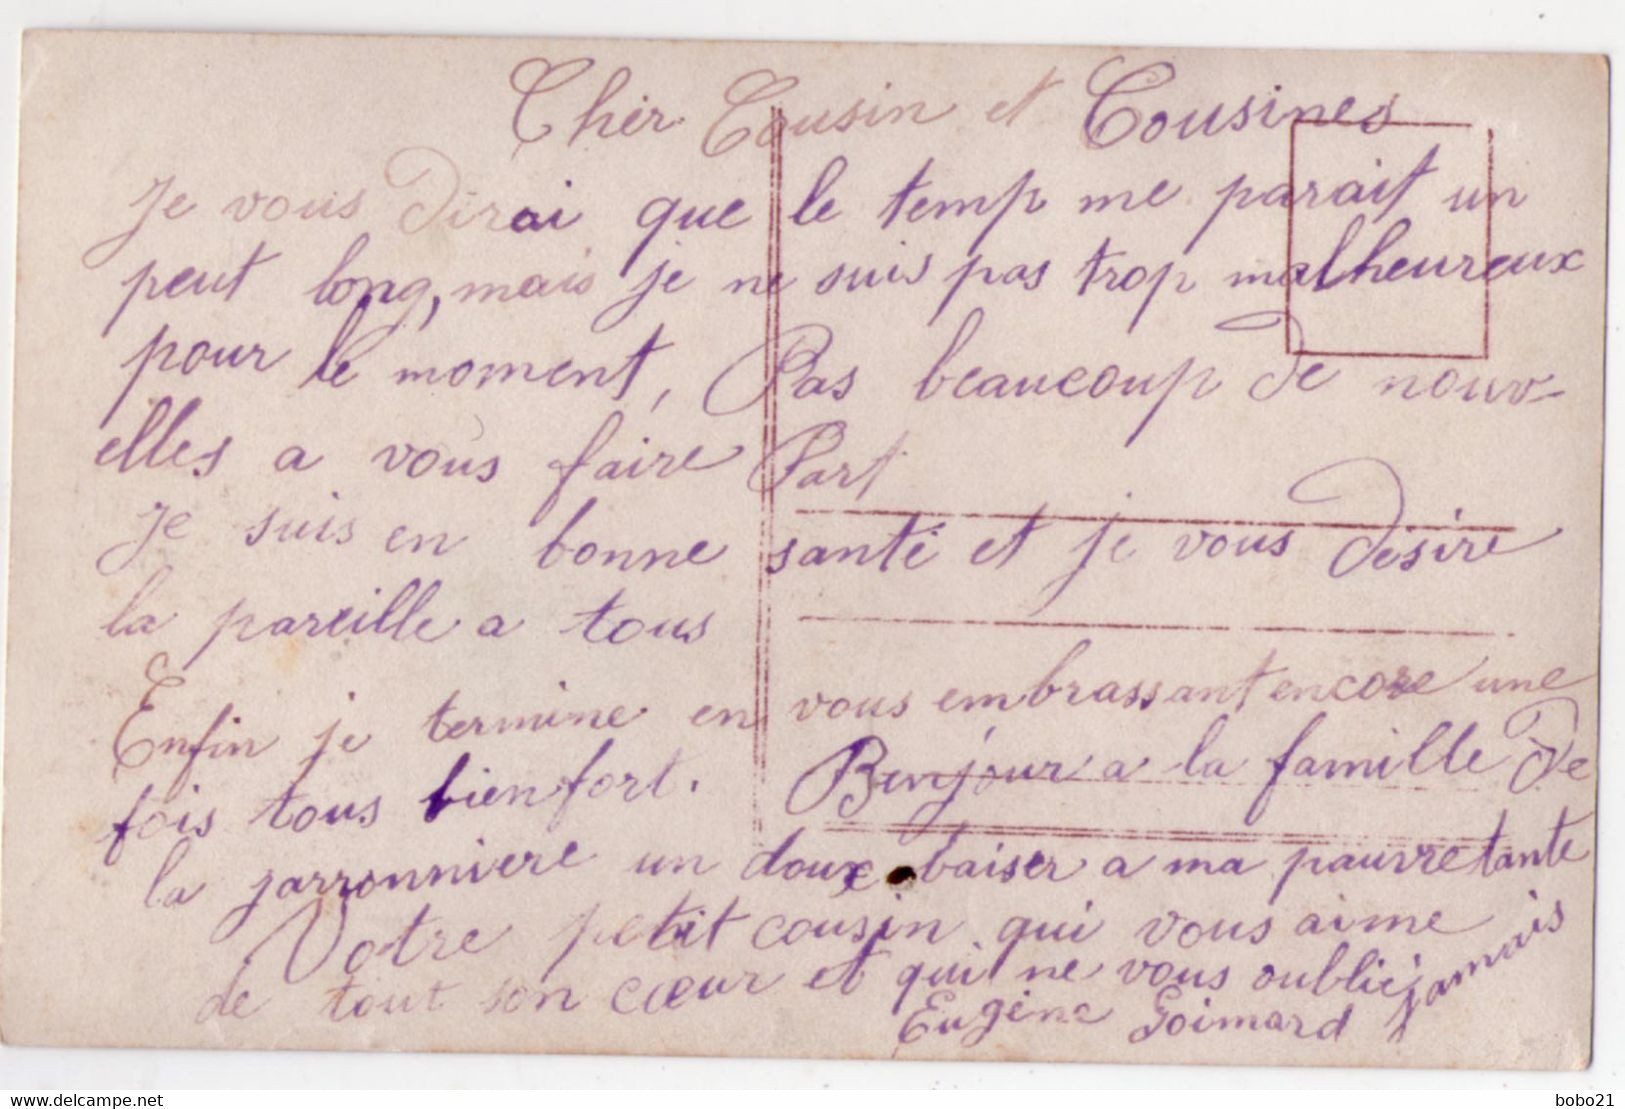 Cher Cousin et Cousines
Je vous dirai que le temp me parait un
peut long, mais je ne suis pas trop malheureux
pour le moment, Pas beaucoup de nouv-
elles a vous faire Part
Je suis en bonne santé et je vous désire
la pareille a tous
Enfin je termine en vous embrassant encore une
fois tous bien fort. Bonjour a la famille de
la jarronniere un doux baiser a ma pauvre tante
Votre petit cousin qui vous aime
de tout son cœur et qui ne vous oublie jamais
Eugène Goimard
bobo21